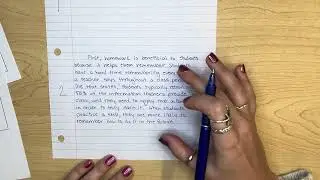 First, homework is beneficial to students
because it helps them remember. Students
have a hard time remembering every
a teacher says throughout a class per
students typically remember
50% of the information teachers provide
class, and they need to apply that
in order to truly learn it. When students
practice a skill, they are more likely to
remember how to do it in the future.
2